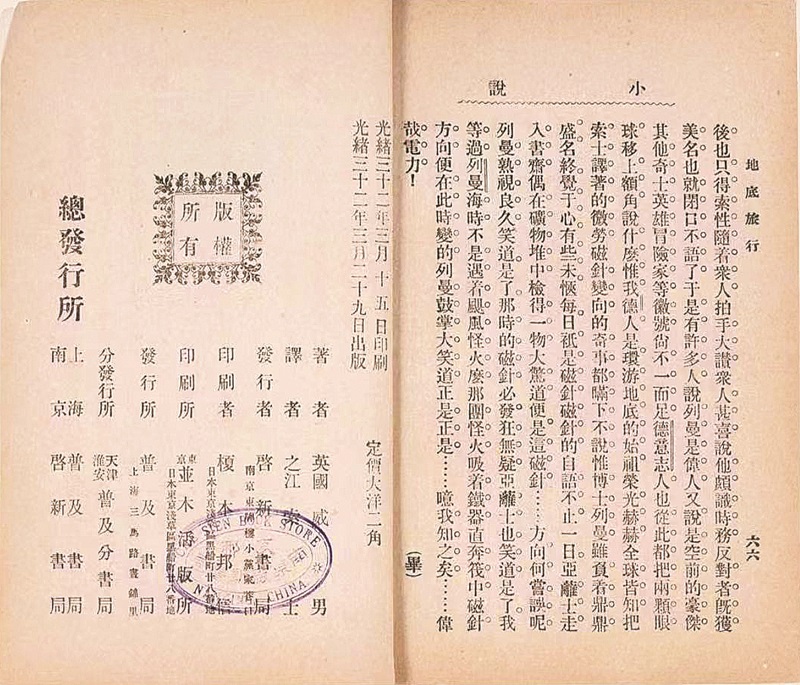 小說
地底旅行
六六
後也只得索性隨着衆人拍手大讚衆人甚喜說他頗識時務反對者既獲
美名也就閉口不語了于是有許多人說列曼是偉人又說是空前的豪傑
其他奇士英雄冒險家等徽號尙不一而足德意志人也從此都把兩顆眼
球移上額角說什麼惟我德人是環游地底的始祖榮光赫赫全球皆知把
索士譯著的微勞磁針變向的奇事都瞞下不說惟博士列曼雖負着鼎鼎
盛名終覺于心有些未愜每日祇是磁針磁針的自語不止一日亞離士走
入書齋偶在礦物堆中檢得一物大驚道便是這磁針……方向何嘗誤呢
列曼熟視良久笑道是了那時的磁針必發狂無疑亞離士也笑道是了我
等過列曼海時不是遇着颶風怪火麼那團怪火吸着鐵器直奔筏中磁針
方向便在此時變的列曼鼓掌大笑道正是正是……噫我知之矣……偉
哉電力！
（畢）
光緒三十二年三月十五日印刷
光緒三十二年三月二十九日出版
定價大洋二角
版權所有
著者 英國威男
譯者 之江士
發行者 啓新書局
印刷者 榎本邦信
日本東京淺草區黑船町廿八番地
印刷所 東京並木活版所
日本東京淺草區黑船町廿八番地
發行所 普及書局
上海三馬路晝錦里
分發行所 天津淮安普及分書局
總發行所
上海普及書局
南京啓新書局
BOOK STORE
CHINA